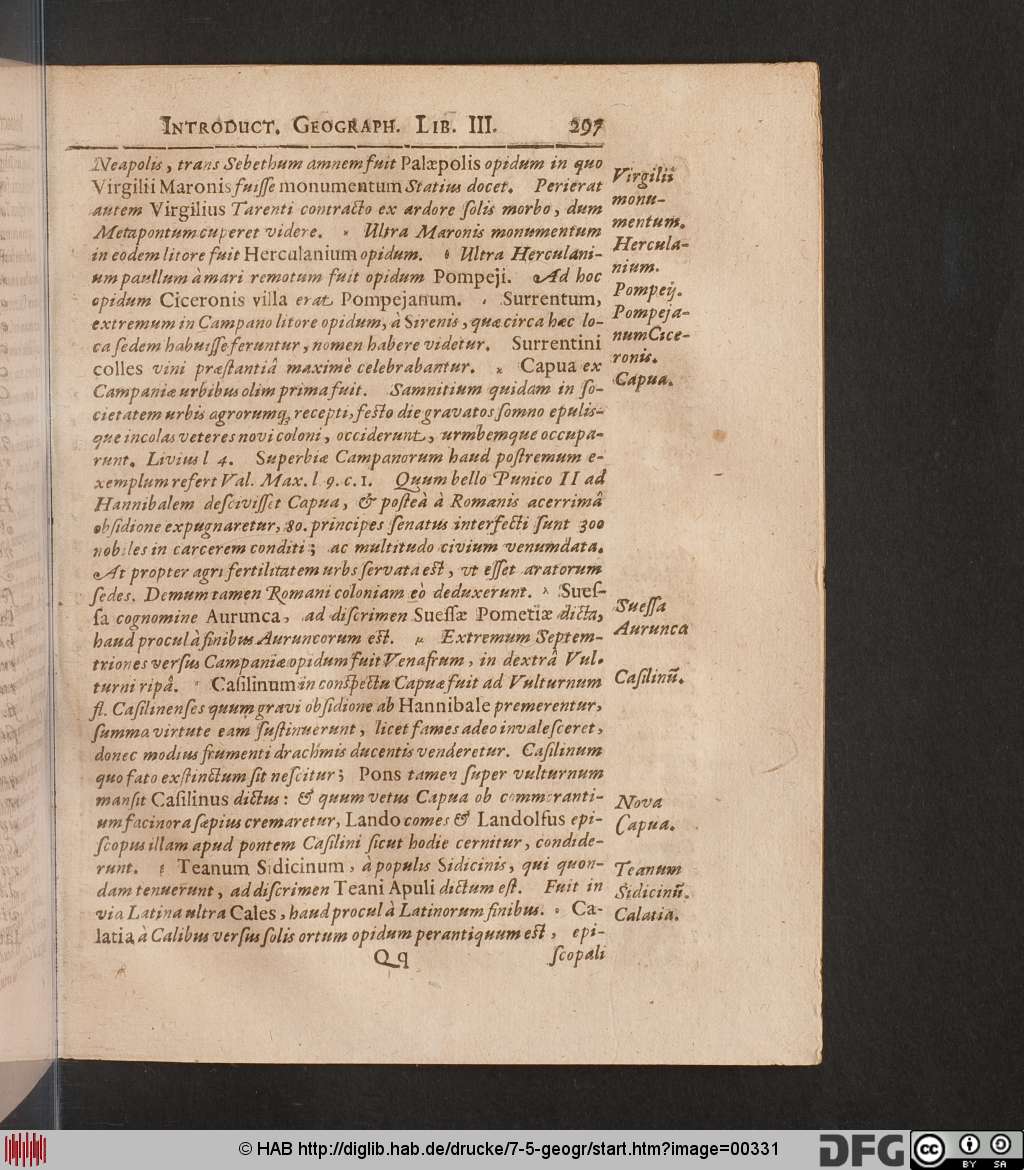 INTRODUCT. GEOGRAPH. LIB. III. 297
Neapolis, trans Sebethum amnem fuit Palæpolis opidum in quo
Virgilii Maronis fuiſſe monumentum Statius docet. Perierat
autem Virgilius Tarenti contracto ex ardore ſolis morbo, dum
Metapontum cuperet videre. Ultra Maronis monumentum
in eodem litore fuit Herculanium opidum. Ultra Herculani-
um paullum à mari remotum fuit opidum Pompeji. Ad hoc
opidum Ciceronis villa erat Pompejanum. Surrentum,
extremum in Campano litore opidum, à Sirenis, quæ circa hæc lo-
ca ſedem habuiſſe feruntur, nomen habere videtur. Surrentini
colles vini præſtantiâ maximè celebrabantur. Capua ex
Campaniæ urbibus olim prima fuit. Samnitium quidam in ſo-
cietatem urbis agrorumq; recepti, feſto die gravatos ſomno epulis-
que incolas veteres novi coloni, occiderunt, urmbemque occupa-
runt. Livius l 4. Superbiæ Campanorum haud poſtremum e-
xemplum refert Val. Max. l 9. c. 1. Quum bello Punico II ad
Hannibalem deſciviſſet Capua, & poſteà à Romanis acerrimâ
obſidione expugnaretur, 80. principes ſenatus interfecti ſunt 300
nobiles in carcerem conditi; ac multitudo civium venumdata.
At propter agri fertilitatem urbs ſervata eſt, vt eſſet aratorum
ſedes. Demum tamen Romani coloniam eò deduxerunt. Sueſ-
ſa cognomine Aurunca, ad diſcrimen Sueſſæ Pometiæ dicta,
haud procul à finibus Auruncorum eſt. Extremum Septem-
triones verſus Campaniæ opidum fuit Venafrum, in dextrâ Vul-
turni ripâ. Caſilinum in conſpectu Capuæ fuit ad Vulturnum
fl. Caſilinenſes quum gravi obſidione ab Hannibale premerentur,
ſumma virtute eam ſuſtinuerunt, licet fames adeo invaleſceret,
donec modius frumenti drachmis ducentis venderetur. Caſilinum
quo fato exſtinctum ſit neſcitur; Pons tamen ſuper vulturnum
manſit Caſilinus dictus: & quum vetus Capua ob commoranti-
um facinora ſæpius cremaretur, Lando comes & Landolfus epi-
ſcopus illam apud pontem Caſilini ſicut hodie cernitur, condide-
runt. Teanum Sidicinum, à populis Sidicinis, qui quon-
dam tenuerunt, ad diſcrimen Teani Apuli dictum eſt. Fuit in
via Latina ultra Cales, haud procul à Latinorum finibus. Ca-
latia à Calibus verſus ſolis ortum opidum perantiquum eſt, epi-
Qq ſcopali
Virgilii
monu-
mentum.
Hercula-
nium.
Pompeij.
Pompeja-
num Cice-
ronis.
Capua.
Sueſſa
Aurunca
Caſilinũ.
Nova
Capua.
Teanum
Sidicinũ.
Calatia.
© HAB http://diglib.hab.de/drucke/7-5-geogr/start.htm?image=00331
DFG
cc
BY SA